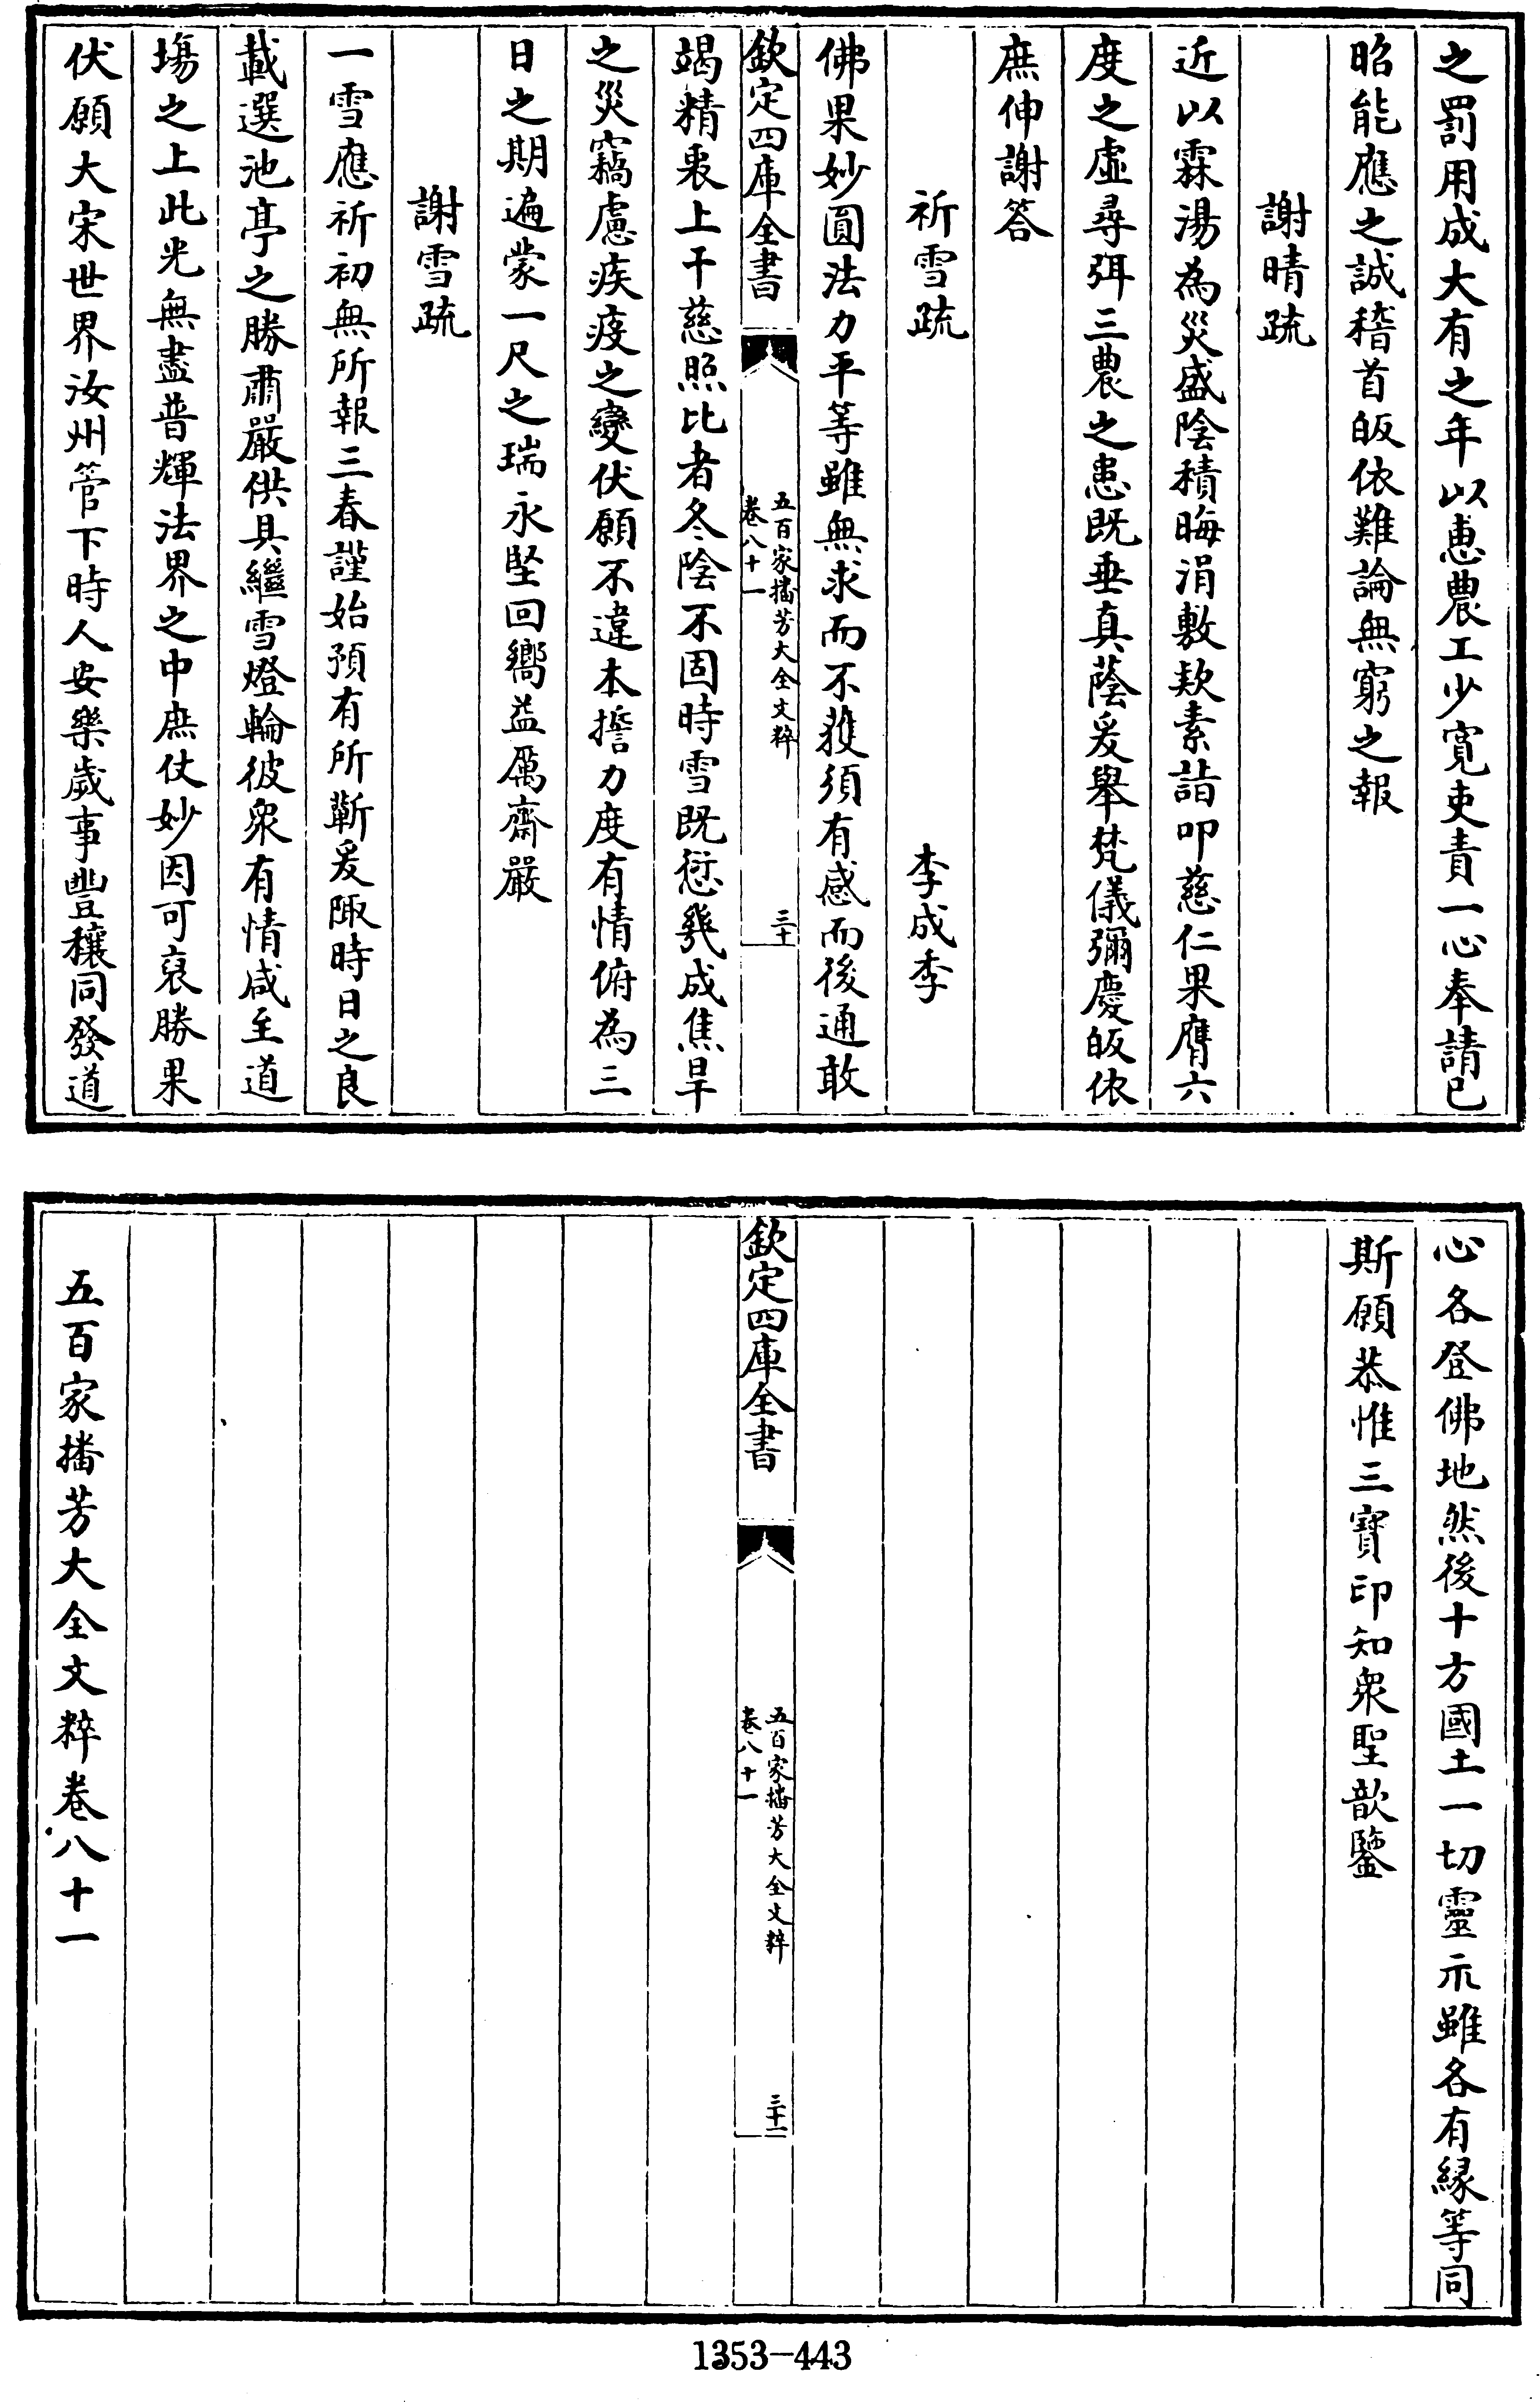 之罰用成大有之年以恵農工少寛吏責一心奉請已
昭能應之誠稽首皈依難論無窮之報
謝晴疏
近以霖湯為災盛陰積晦涓敷欵素詣叩慈仁果膺六
度之虚尋弭三農之患既垂真蔭爰舉梵儀彌慶皈依
庶伸謝答
祈雪疏　李成季
佛果妙圓法力平等雖無求而不獲須有感而後通敢
欽定四庫全書　五百家播芳大全文粹卷八十一　三十
竭精衷上干慈照比者冬陰不固時雪既愆幾成焦旱
之災竊慮疾疫之變伏願不違本誓力度有情俯為三
日之期遍蒙一尺之瑞永堅回嚮益厲齋嚴
謝雪疏
一雪應祈初無所報三春謹始預有所蘄爰陬時日之良
載選池亭之勝肅嚴供具繼雪燈輪彼衆有情咸至道
場之上此光無盡普輝法界之中庶仗妙因可裒勝果
伏願大宋世界汝州管下時人安樂歲事豐穰同發道
心各登佛地然後十方國土一切靈示雖各有縁等同
斯願恭惟三寶印知衆聖歆鑒
欽定四庫全書　五百家播芳大全文粹卷八十一　三十一
五百家播芳大全文粹卷八十一
1353-443